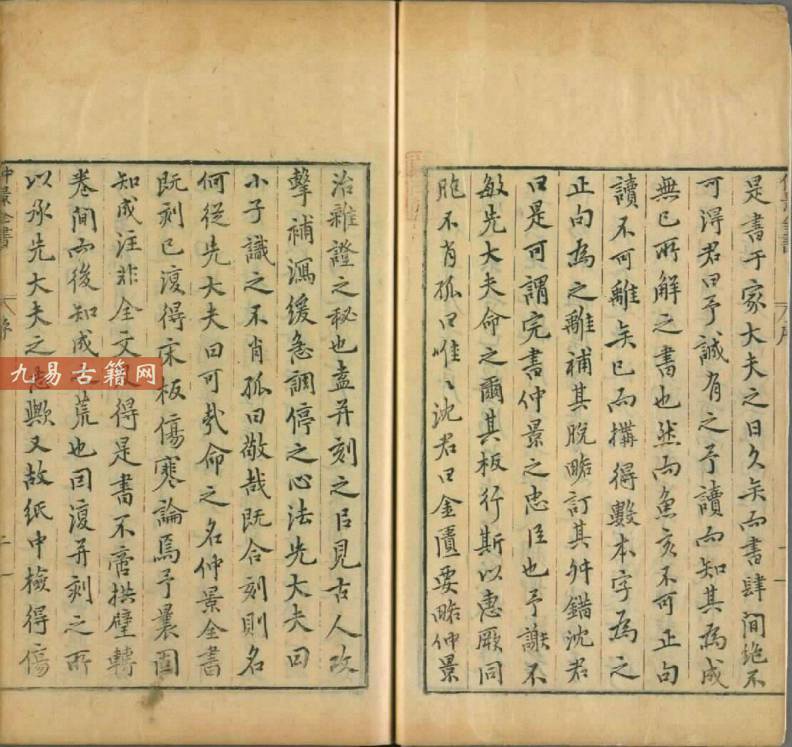 是書于家大夫之日久矣而書肆間絕不
可得君曰予誠有之予讀而知其為成
無已所解之書也然而魚亥不可正句
讀不可離矣已而搆得數本字為之
正句為之離補其脫略訂其舛錯沈君
曰是可謂完書仲景之忠臣也予謝不
敏先大夫命之爾其板行斯以惠厥同
胞不肖孤曰唯〻沈君曰金匱要略仲景
治雜證之秘也盍并刻之以見古人攻
擊補瀉緩急調停之心法先大夫曰
小子識之不肖孤曰敬哉既合刻則名
何從先大夫曰可哉命之名仲景全書
既刻已復得宋板傷寒論焉予曩固
知成注非全文得是書不啻拱璧轉
卷間而後知成荒也因復并刻之所
以承先大夫之志歟又故紙中檢得傷
仲景全書
序
二
九易古籍网